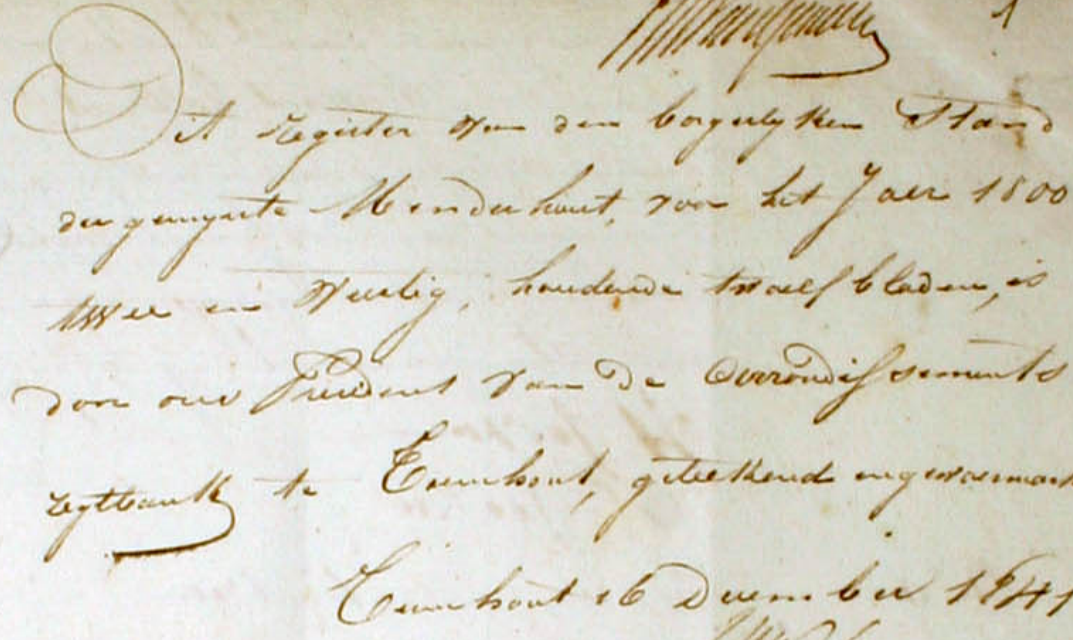 1
Dit register van den borgerlyken Stand
der gemeynte Menderhout, voor het Jaer 1800
twee en Veertig, houdende twaelf bladen, is
door ons President van de Arrondissements
regtbank te Turnhout, geteekend en gewaermerkt
Turnhout 16 December 1841